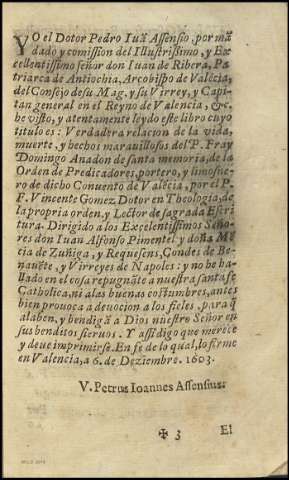 YO el Dotor Pedro Iuã Assensio, por mã
dado y comission del Illustrissimo, y Ex
cellentissimo señor don Iuan de Ribera, Pa
triarca de Antiochia, Arçobispo de Valẽcia,
del Consejo de su Mag. y su Virrey, y Capi-
tan general en el Reyno de Valencia, &c.
he visto, y atentamente leydo este libro cuyo
titulo es: Verdadera relacion de la vida,
muerte, y hechos marauillosos del P. Fray
Domingo Anadon de santa memoria, de la
Orden de Predicadores, portero, y limosne-
ro de dicho Conuento de Valẽcia, por el P.
F. Vincente Gomez Dotor en Theologia, de
la propria orden, y Lector de sagrada Escri
tura. Dirigido a los Excelentissimos Seño-
res don Iuan Alfonso Pimentel y doña Mẽ
cia de Zuñiga, y Requesens, Condes de Be-
nauẽte, y Virreyes de Napoles: y no he ha-
llado en el cosa repugnãte a nuestra santa fe
Catholica, ni a las buenas costumbres, antes
bien prouoca a deuocion a los fieles, para q̃
alaben, y bendigã a Dios nuestro Señor en
sus benditos sieruos. Y assi digo que merece
y deue imprimirse. En fe de lo qual, lo firme
en Valencia, a 6. de Deziembre. 1603.
V. Petrus Ioannes Assensius.
✠ 3 El